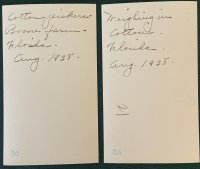 Cotton pickers.
Boom farm.
Florida.
Aug. 1938.
Weighing in
Cotton.
Florida.
Aug. 1938.